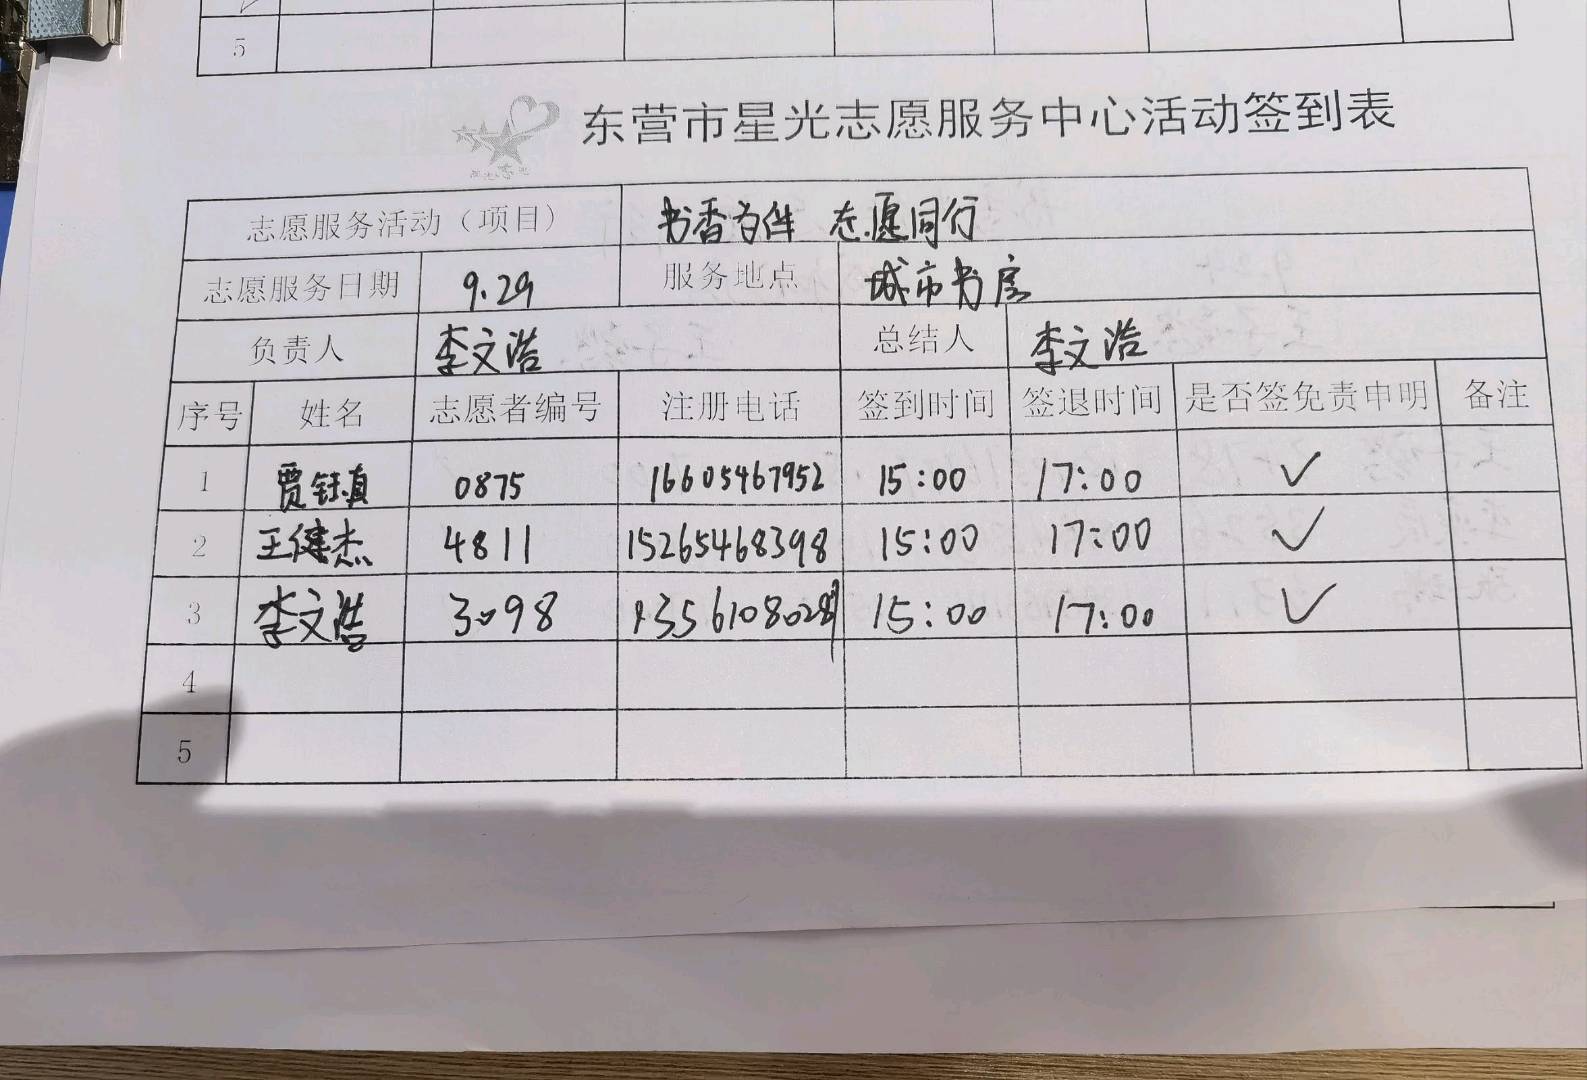 5
东营市星光志愿服务中心活动签到表
志愿服务活动（项目） 书香为伴 志愿同行
志愿服务日期 9.29 服务地点 城市书房
负责人 李文浩 总结人 李文浩
序号 姓名 志愿者编号 注册电话 签到时间 签退时间 是否签免责申明 备注
1 贾钰真 0875 16605467952 15:00 17:00 ✓
2 王健杰 4811 15265468398 15:00 17:00 ✓
3 李文浩 3098 15:00 17:00 ✓
4
5